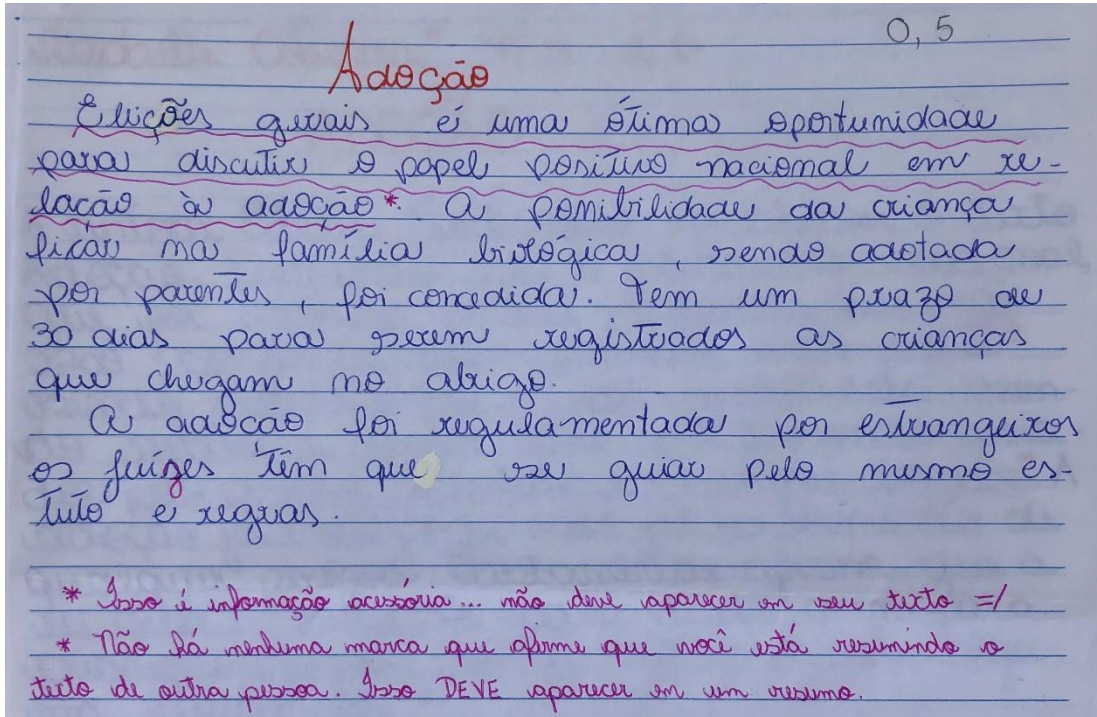 0,5
Adoção
Eleições gerais é uma ótima oportunidade
para discutir o papel positivo nacional em re-
lação à adoção*. A possibilidade da criança
ficar na família biológica, sendo adotada
por parentes, foi concedida. Tem um prazo de
30 dias para serem registrados as crianças
que chegam no abrigo.
A adoção foi regulamentada por estrangeiros
os juízes têm que se guiar pelo mesmo es-
tuto e regras.
* Isso é informação acessória... não deve aparecer em seu texto =/
* Não há nenhuma marca que afirme que você está resumindo o
texto de outra pessoa. Isso DEVE aparecer em um resumo.